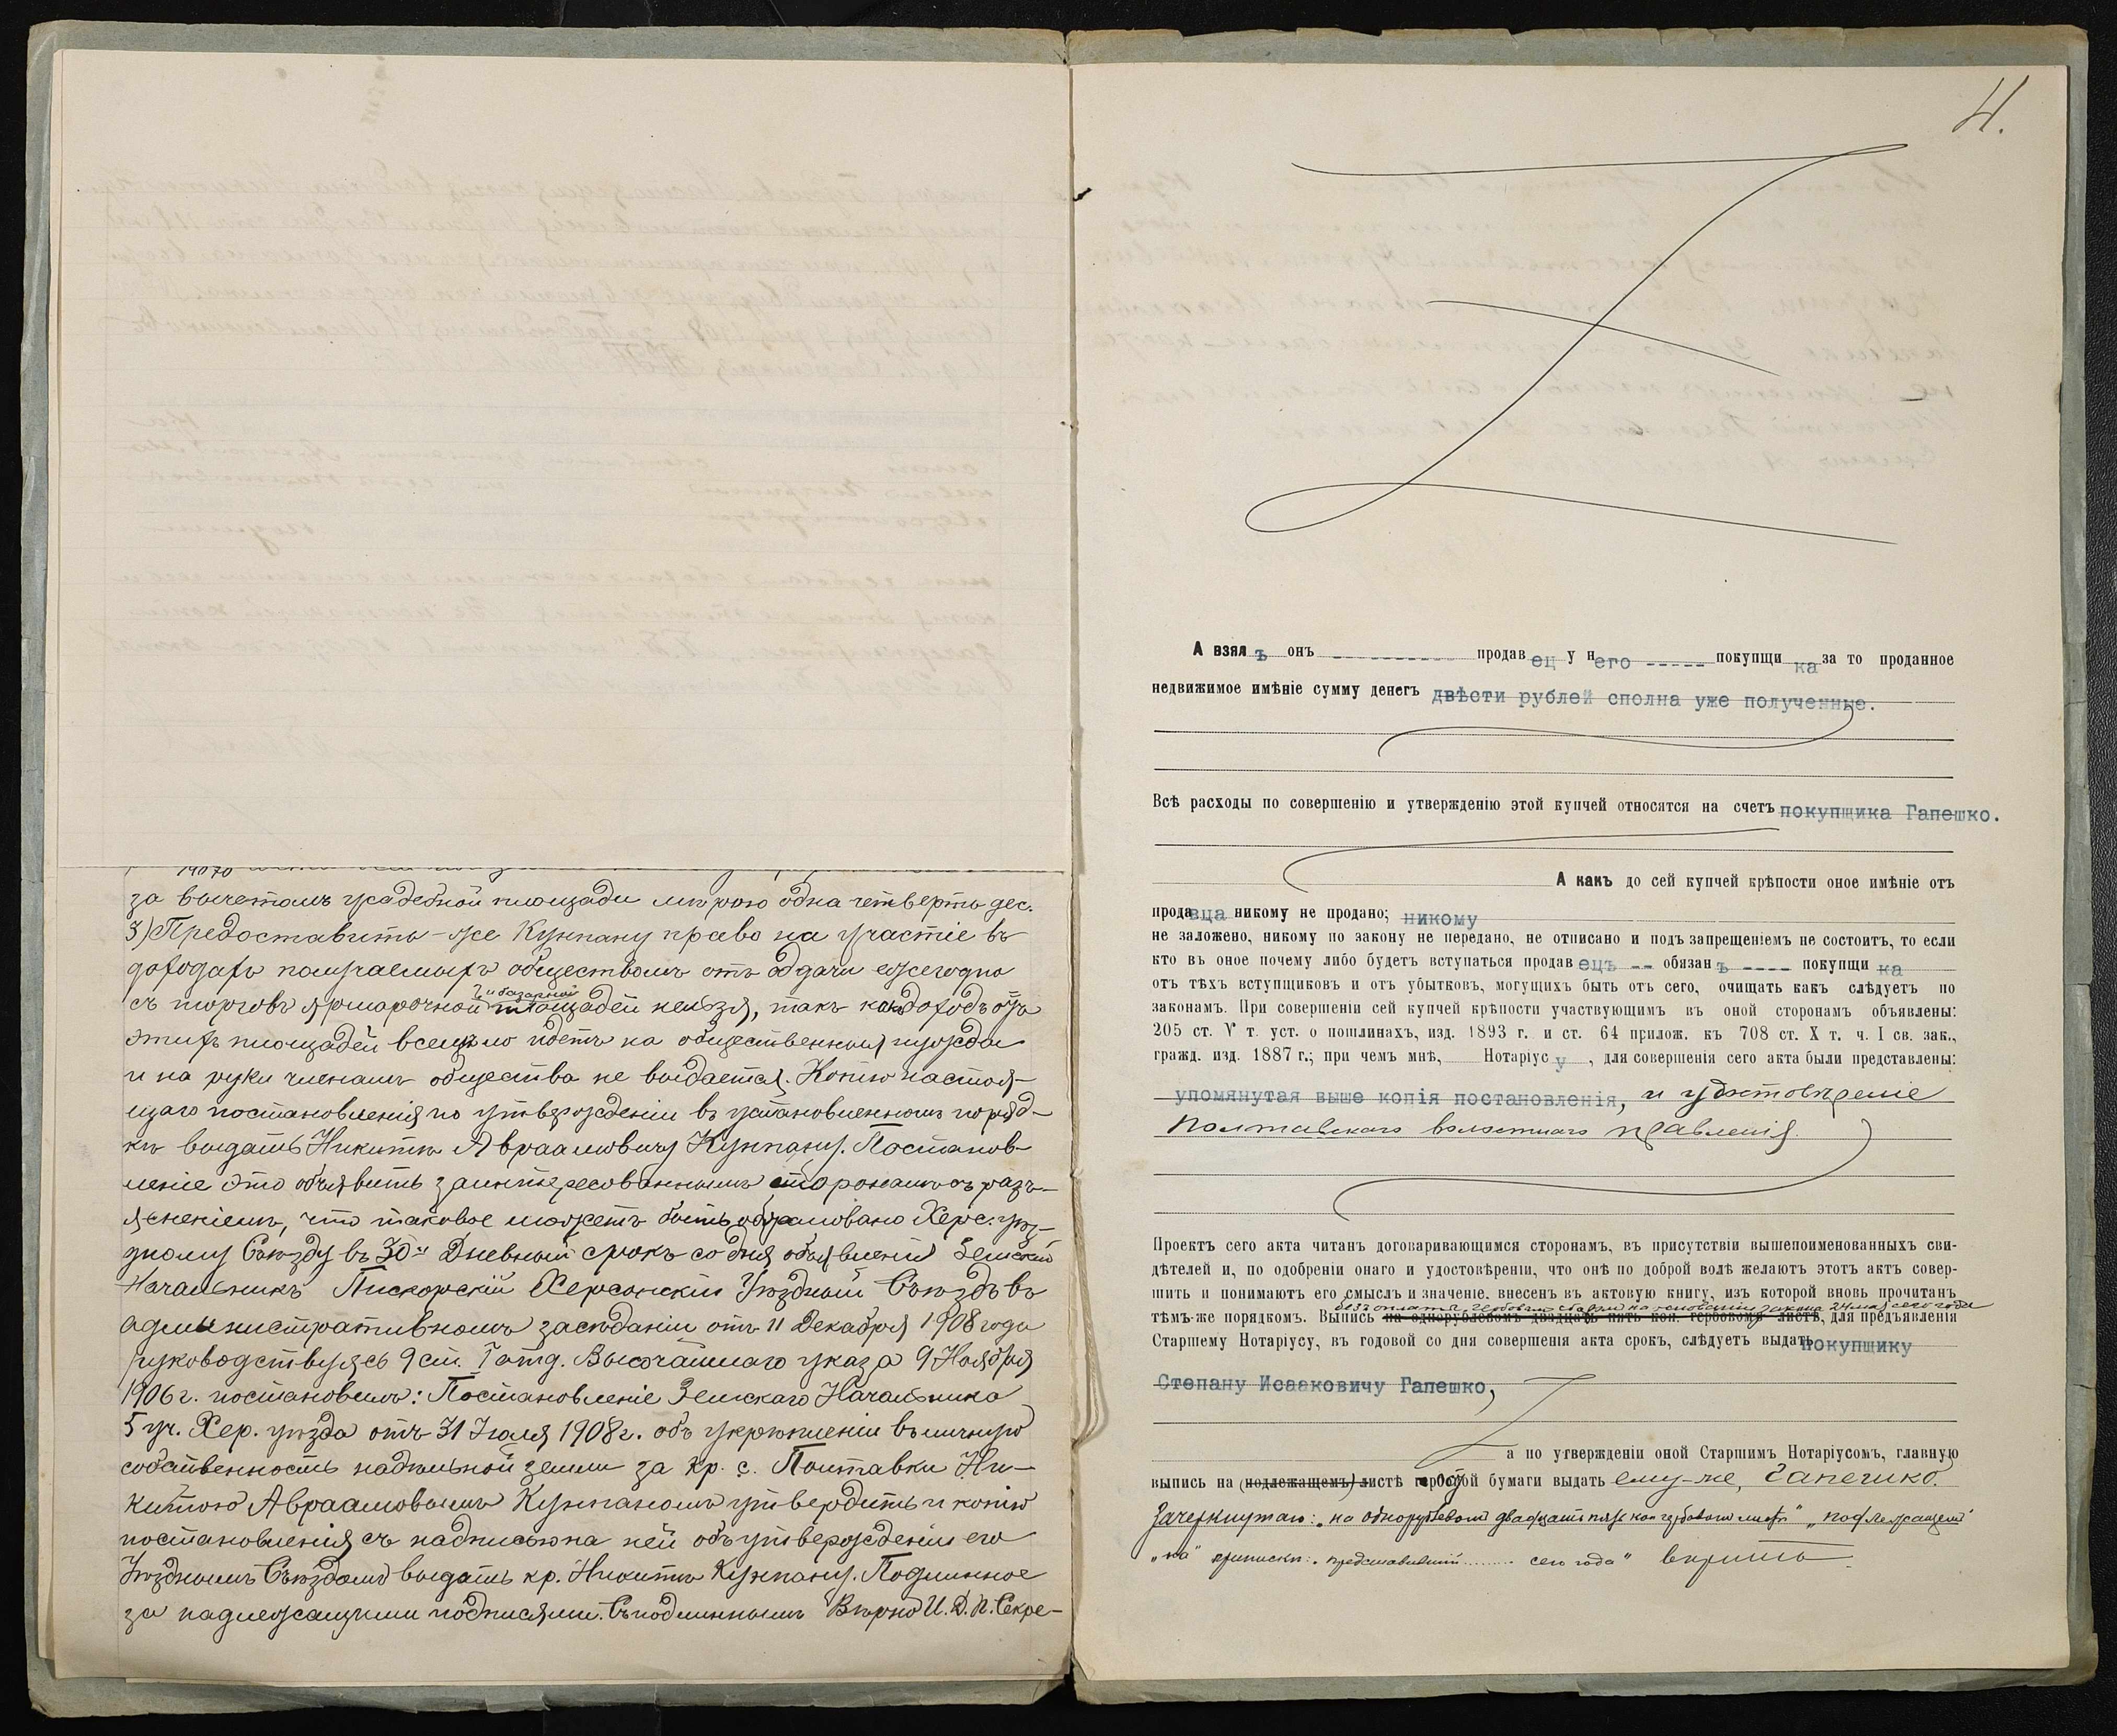 за вычетомъ усадебной площади мѣрою одна четверть дес.
3) Предоставить-же Кунпану право на участіе въ
доходахъ получаемыхъ обществомъ отъ отдачи ежегодно
и базарной
съ торговъ ярмарочной площадей нельзя, такъ какъ доходъ отъ
этихъ площадей всецѣло идетъ на общественныя нужды
и на руки членамъ общества не выдается. Копію настоя-
щаго постановленія по утвержденіи въ установленномъ поряд-
кѣ выдать Никитѣ Авраамовичу Кунпану. Постанов-
леніе это объявить заинтересованнымъ сторонамъ съ разъ-
ясненіемъ, что таковое можетъ быть обжаловано Херс. уѣз-
дному Съѣзду въ 30и Дневный срокъ со дня объявленія Земскій
Начальникъ Пискорскій Херсонскій Уѣздный Съѣздъ въ
административномъ засѣданіи отъ 11 Декабря 1908 года
руководствуясь 9 ст. I отд. Высочайшаго указа 9 Ноября
1906 г. постановилъ: Постановленіе Земскаго Начальника
5 уч. Хер. уѣзда отъ 31 Іюля 1908 г. объ укрѣпленіи въ личную
собственность надѣльной земли за кр. с. Полтавки Ни-
китою Авраамовымъ Кунпаномъ утвердить и копію
постановленія съ надписью на ней объ утвержденіи его
Уѣзднымъ Съѣздомъ выдать кр. Никитѣ Кунпану. Подлинное
за надлежащими подписями. Съ подлиннымъ Вѣрно И. Д. Н. Секре-
4.
А взялъ онъ ---------- продавец у него ----- покупщика за то проданное
недвижимое имѣніе сумму денегъ двѣсти рублей сполна уже полученные.
Всѣ расходы по совершенію и утвержденію этой купчей относятся на счетъ покупщика Гапешко.
А какъ до сей купчей крѣпости оное имѣніе отъ
продавца никому не продано; никому
не заложено, никому по закону не передано, не отписано и подъ запрещеніемъ не состоитъ, то если
кто въ оное почему либо будетъ вступаться продавецъ -- обязанъ ---- покупщика
отъ тѣхъ вступщиковъ и отъ убытковъ, могущихъ быть отъ сего, очищать какъ слѣдуетъ по
законамъ. При совершеніи сей купчей крѣпости участвующимъ въ оной сторонамъ объявлены:
205 ст. V т. уст. о пошлинахъ, изд. 1893 г. и ст. 64 прилож. къ 708 ст. X т. ч. I св. зак.,
гражд. изд. 1887 г.; при чемъ мнѣ, Нотаріусу, для совершенія сего акта были представлены:
упомянутая выше копія постановленія, и удостовѣреніе
Полтавскаго волостнаго правленія.
Проектъ сего акта читанъ договаривающимся сторонамъ, въ присутствіи вышепоименованныхъ сви-
дѣтелей и, по одобреніи онаго и удостовѣреніи, что онѣ по доброй волѣ желаютъ этотъ актъ совер-
шить и понимаютъ его смыслъ и значеніе, внесенъ въ актовую книгу, изъ которой вновь прочитанъ
безъ оплаты гербовымъ сборомъ на основаніи закона 24 мая сего года
тѣмъ-же порядкомъ. Выпись на однорублевомъ двадцать пять коп. гербовомъ листѣ, для предъявленія
Старшему Нотаріусу, въ годовой со дня совершенія акта срокъ, слѣдуетъ выдать покупщику
Степану Исааковичу Гапешко,
а по утвержденіи оной Старшимъ Нотаріусомъ, главную
выпись на (подлежащемъ) листѣ простой бумаги выдать ему-же, Гапешко.
Зачеркнутаго: „на однорублевомъ двадцати пяти коп гербовомъ листѣ" „подлежащемъ"
„на" приписки: сего года" вѣрить